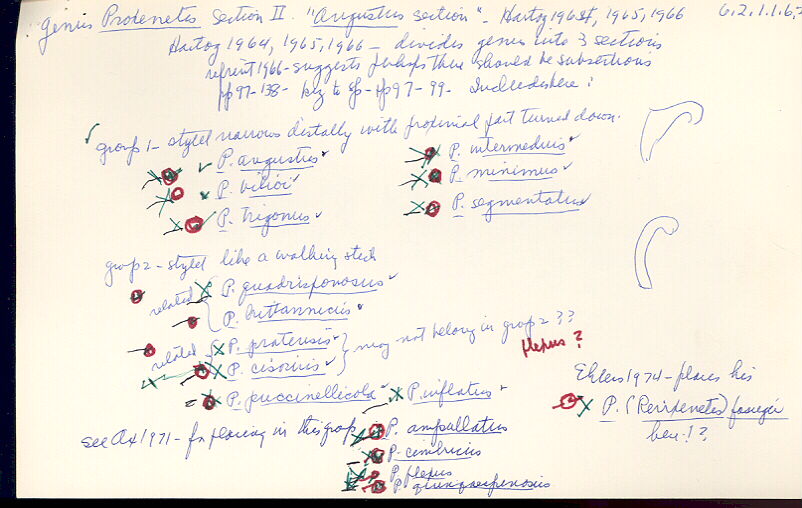 Genus Proxenetes Section II. "Angustus section" - Hartog 1964, 1965, 1966 6.2.1.1.6.
Hartog 1964, 1965, 1966 - divides genus into 3 sections
reprint 1966 - suggests perhaps there should be subsections
pp 97-138 - key to sp - pp 97-99. Included here:
group 1 - stylet narrows distally with proximal part turned down.
P. angustus
P. intermedius
P. minimus
P. trigonus
P. segmentatus
group 2 - stylet like a walking stick
related P. quadrispinosus
P. britannicus
related P. pratensis } may not belong in group 2 ??
P. cisorius
flexus ?
P. puccinellicola
P. inflatus
Ehlers 1974 - places his
P. (Perixenetes)
here!?
see Ax 1971 - for placing in this group
P. ampullatus
P. cimbricus
P. flexus
P. quinquespinosus